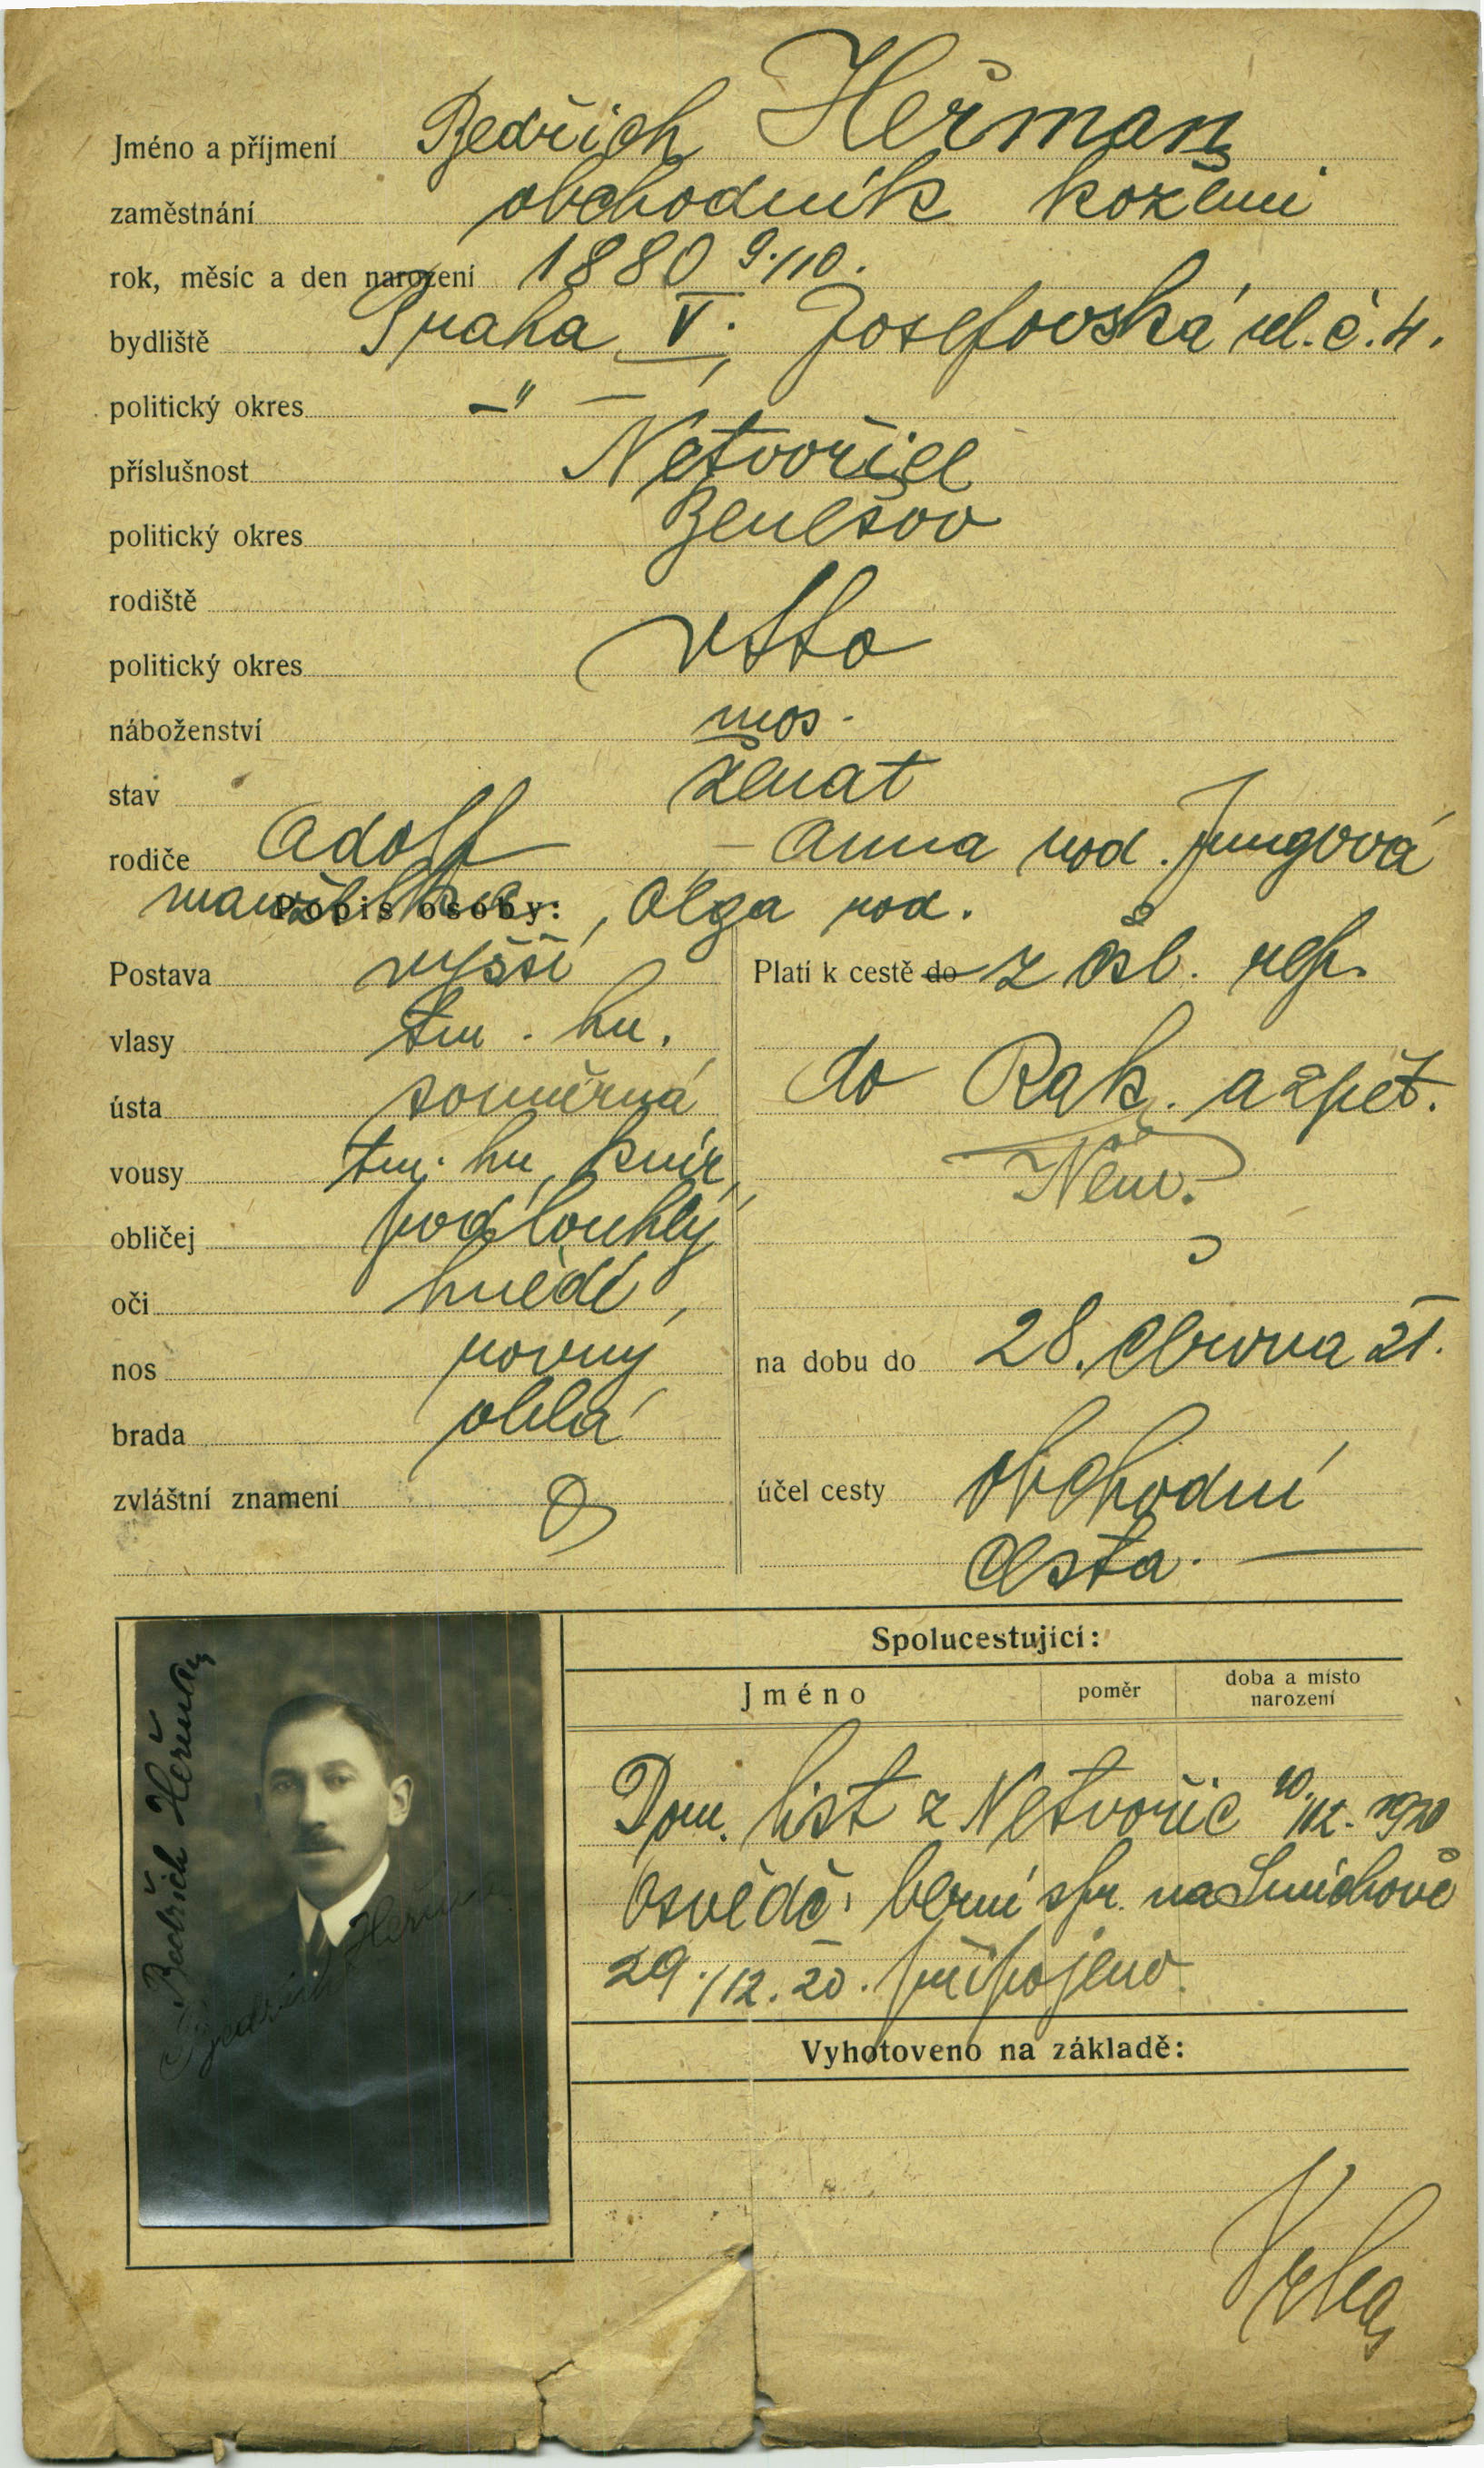 Jméno a příjmení Bedřich Heřman
zaměstnání obchodník kožemi
rok, měsíc a den narození 1880 9./10.
bydliště Praha V., Josefovská ul. č. 4.
politický okres —"—
příslušnost Netvořice
politický okres Benešov
rodiště
politický okres
náboženství mos.
stav ženat
rodiče Adolf – Anna rod. Jungová
Popis osoby: manželka, Olga rod.
Postava vyšší
vlasy tm. hn.
ústa souměrná
vousy tm. hn. knír
obličej podlouhlý
oči hnědé
nos rovný
brada oblá
zvláštní znamení
Platí k cestě do z čsl. rep.
do Rak. a zpět.
Něm.
na dobu do 28. června 21.
účel cesty obchodní
cesta.
Bedřich Heřman
Bedřich Heřman
Spolucestující:
Jméno poměr doba a místo narození
Dom. list z Netvořic 10./12. 1920
osvědč. berní spr. na Smíchově
29./12. 20. připojeno.
Vyhotoveno na základě: